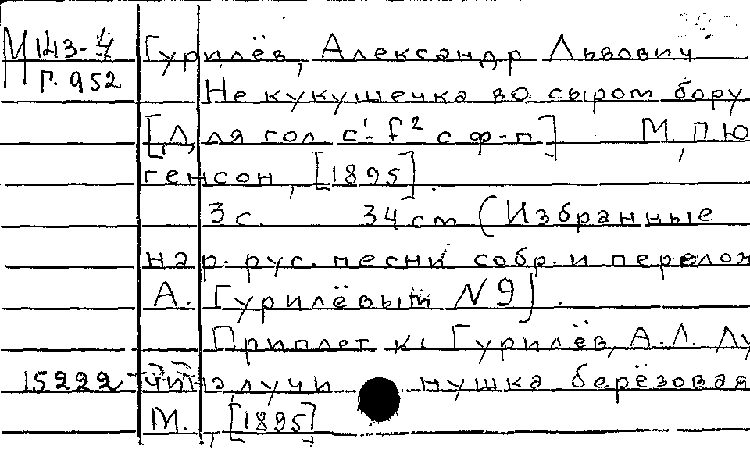 М 143-4 Гурилёв, Александр Львович
Г. 952
Не кукушечка во сыром бору
[Для гол. c¹- f² с ф-п] М, П. Ю
генсон, [1895].
3 с. 34 см (Избранные
нар. рус. песни собр. и перелож
А. Гурилёвым №9).
Приплет. к: Гурилёв, А.Л. Лу
15222 чина, лучинушка берёзовая
М., [1895]